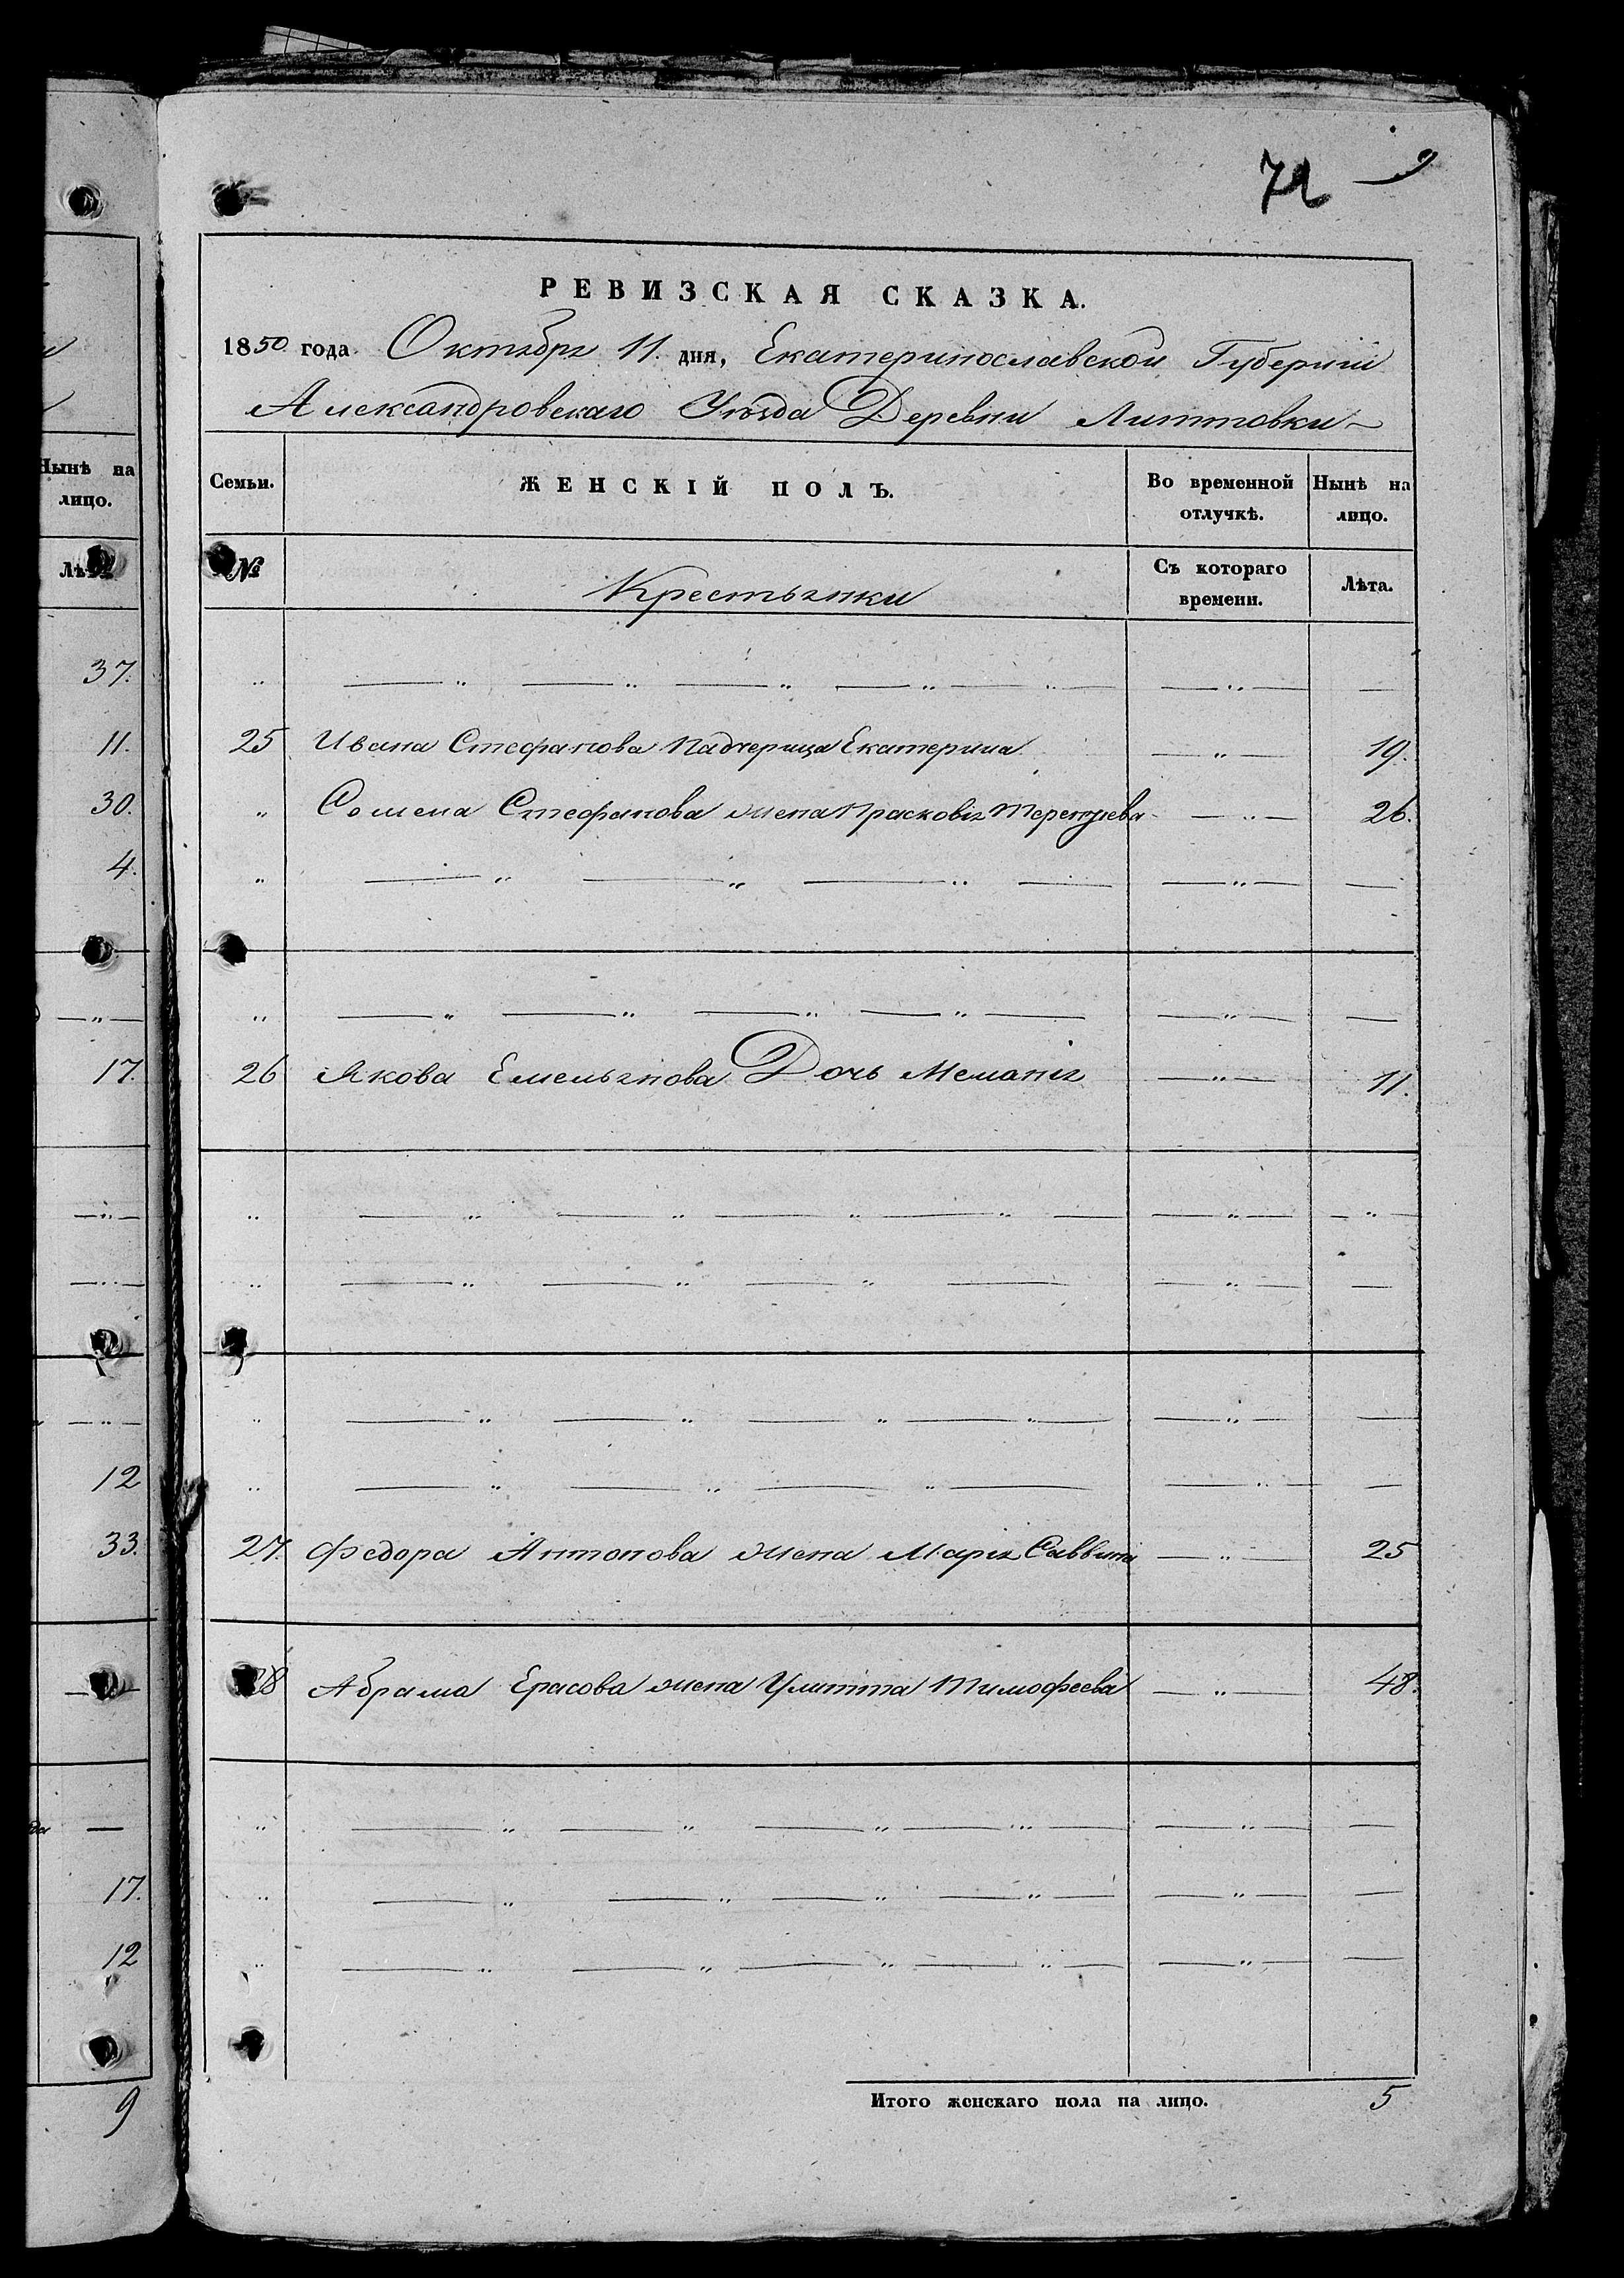 72 9
РЕВИЗСКАЯ СКАЗКА.
1850 года Октября 11. дня, Екатеринославской Губерніи
Александровскаго Уѣзда Деревни Литтовки
Семьи. ЖЕНСКІЙ ПОЛЪ. Во временной отлучкѣ. Нынѣ на лицо.
№ Крестьянки Съ котораго времени. Лѣта.
„ — „ — „ — „ — „ — „ — — „ — —
25 Ивана Стефанова Падчерица Екатерина — „ — 19.
„ Семена Стефанова жена Прасковія Терентіева — „ — 26.
„ — „ — „ — „ — — „ — —
„ — „ — „ — „ — „ — — „ — —
26 Якова Емельянова Дочь Меланія — „ — 11.
„ — „ — „ — „ — „ — — „ — — „ —
„ — „ — „ — „ — — „ — —
„ — „ — „ — „ — „ — — „ — —
„ — „ — „ — „ — — „ — —
27. Федора Антонова жена Марія Саввина — „ — 25
28 Абрама Ерасова жена Улитта Тимофеева — „ — 48.
„ — „ — „ — „ — „ — — „ — —
„ — „ — „ — „ — „ — — „ — —
„ — „ — „ — „ — „ — — „ — —
Итого женскаго пола на лицо. 5
Нынѣ на
лицо.
37.
11.
30.
4.
— „ —
17.
— „ —
— „ —
— „ —
12
33.
—
17.
12
9